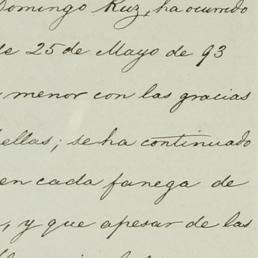 Domingo Ruz, ha ocurrido
de 25 de Mayo de 93
menor con las gracias
ellas; se ha continuado
en cada fanega de
, y que apesar de las